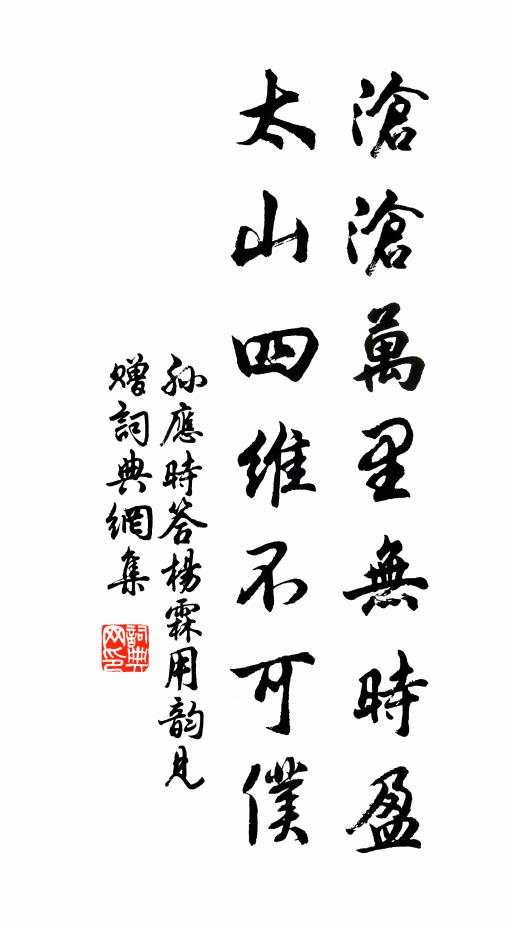 滄滄萬里無時盈
太山四維不可僕
孙應時答楊霖用韵見
赠詞典網集
詞典
网印